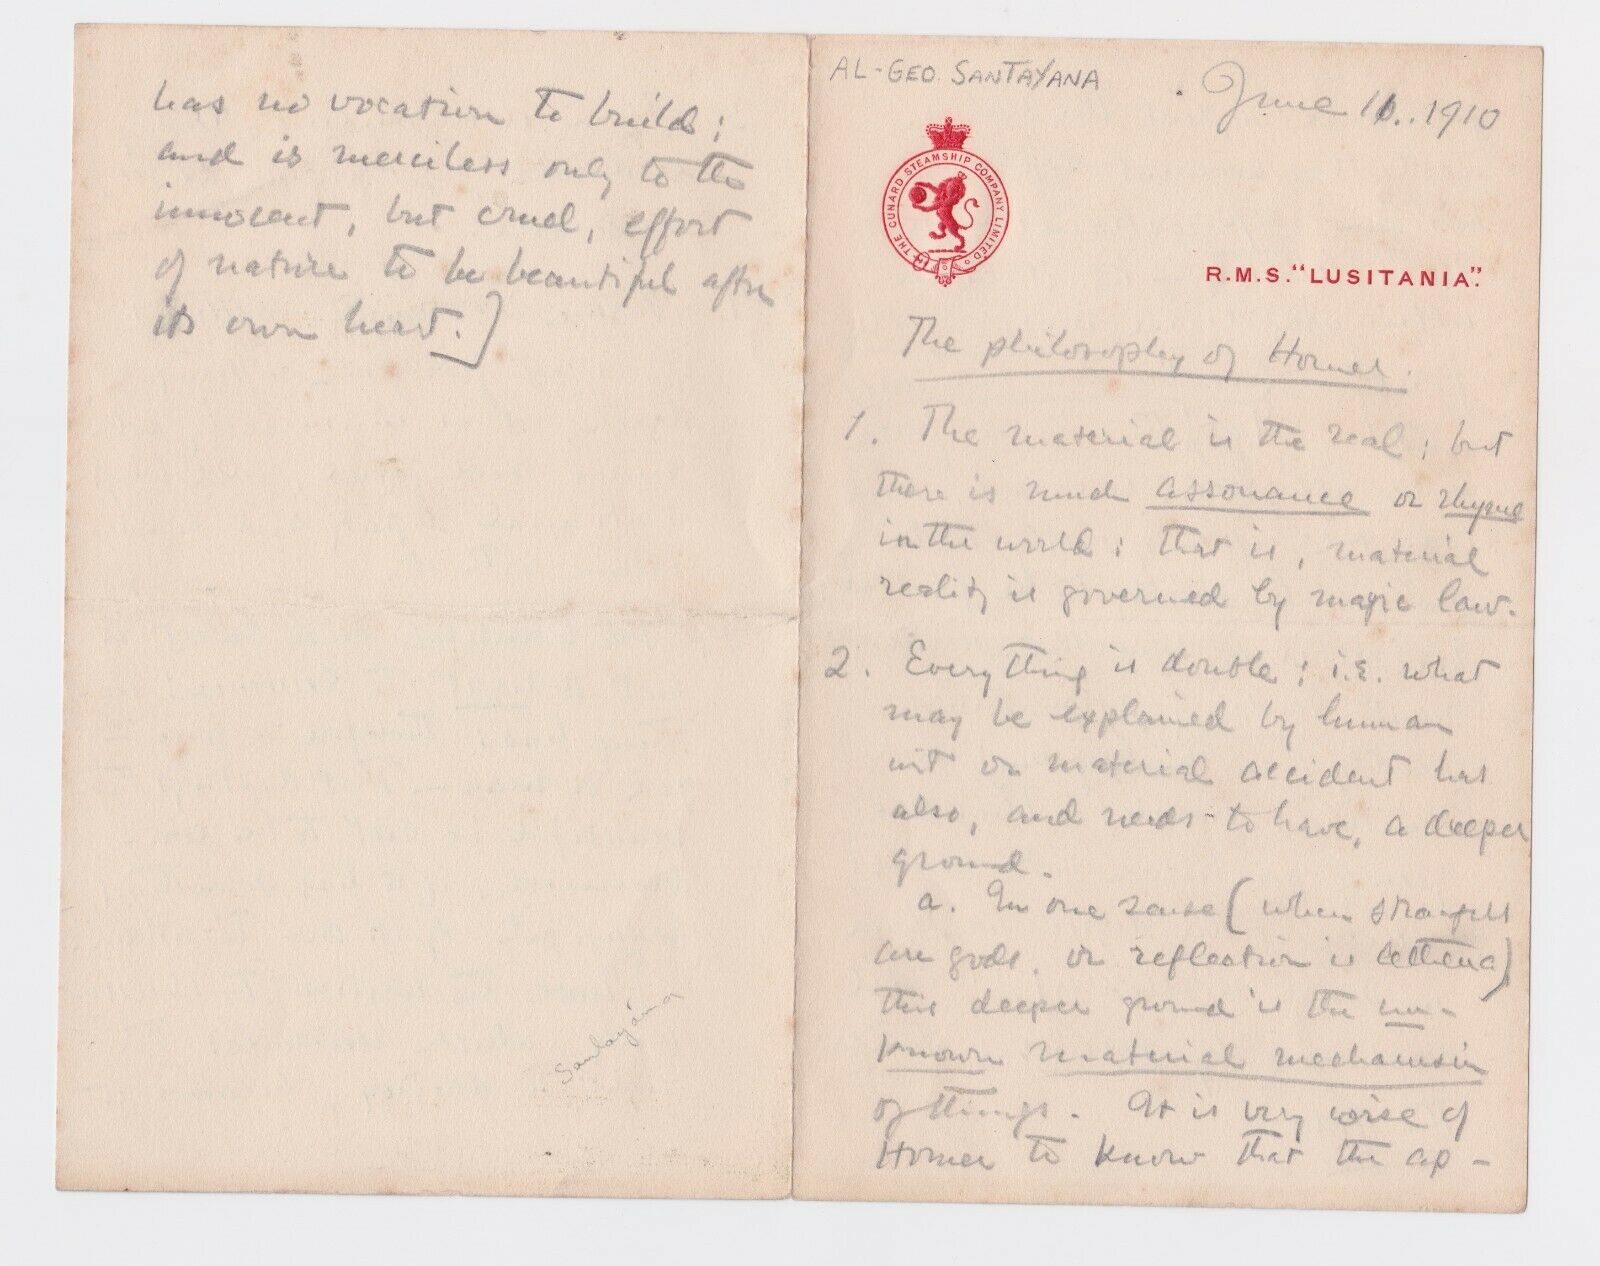 has no vocation to build;
and is merciless only to the
innocent, but cruel, effort
of nature to be beautiful after
its own heart.]
Santayána
AL-GEO. SANTAYANA
June 11. 1910
THE CUNARD STEAMSHIP COMPANY LIMITED
R.M.S. "LUSITANIA".
The philosophy of Homer.
1. The material is the real; but
there is much assonance or rhyme
in the world; that is, material
reality is governed by magic law.
2. Everything is double; i.e. what
may be explained by human
wit or material accident has
also, and needs to have, a deeper
ground.
a. In one sense (when
are gods, or reflection is Athena)
this deeper ground is the un-
known material mechanism
of things. It is very wise of
Homer to know that the ap-